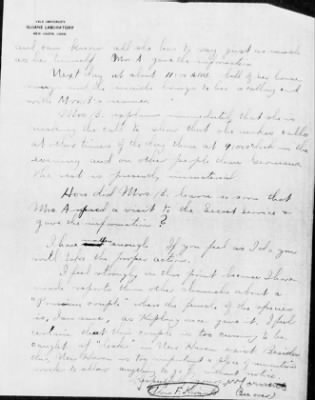 YALE UNIVERSITY
SLOANE LABORATORY
NEW HAVEN, CONN.
and can know all she has to say just as much
as her himself. Mrs A gave the information
Next day at about 11:00 AM. bell of my house
rang and the maid brings to her a calling card
with Mrs B's name.
Mrs B. explains immediately that she is
making the call to show that she makes calls
at other times of the day than at 9 o'clock in the
evening and on other people than Governor
The rest is purely immaterial.
How did Mrs B. learn so soon that
Mrs A paid a visit to the Secret Service &
gave the information?
I have enough. If you feel as I do, you
will take the proper action.
I feel strongly on this point because I have
made reports thru other channels about a
"couple" where the female of the species
is, I am sure, as Kipling once gave it. I feel
certain that this couple is too cunning to be
caught if "leaks" in New Haven exist. Besides
this New Haven is too important a place of munitions
work to allow anything to go by without notice.
(see over)